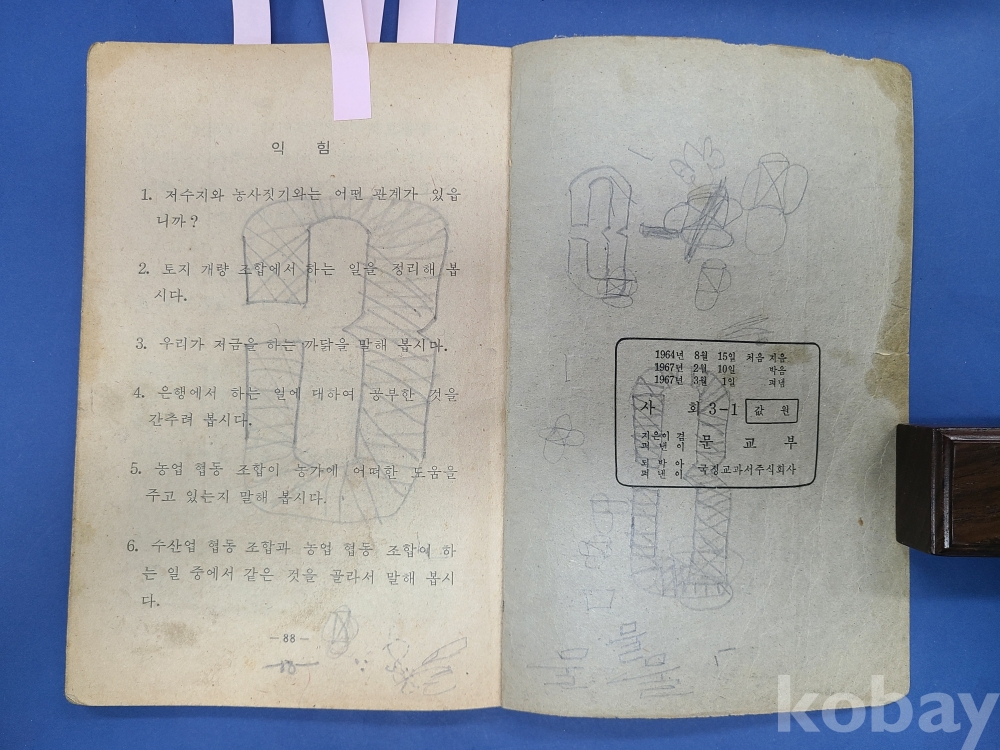 익 힘
1. 저수지와 농사짓기와는 어떤 관계가 있읍
니까?
2. 토지 개량 조합에서 하는 일을 정리해 봅
시다.
3. 우리가 저금을 하는 까닭을 말해 봅시다.
4. 은행에서 하는 일에 대하여 공부한 것을
간추려 봅시다.
5. 농업 협동 조합이 농가에 어떠한 도움을
주고 있는지 말해 봅시다.
6. 수산업 협동 조합과 농업 협동 조합에 하
는 일 중에서 같은 것을 골라서 말해 봅시
다.
—88—
1964년 8월 15일 처음 지음
1967년 2월 10일 박음
1967년 3월 1일 펴냄
사 회 3-1 값 원
지은이 겸
펴낸이 문 교 부
되박아
펴낸이 국정교과서주식회사
kobay